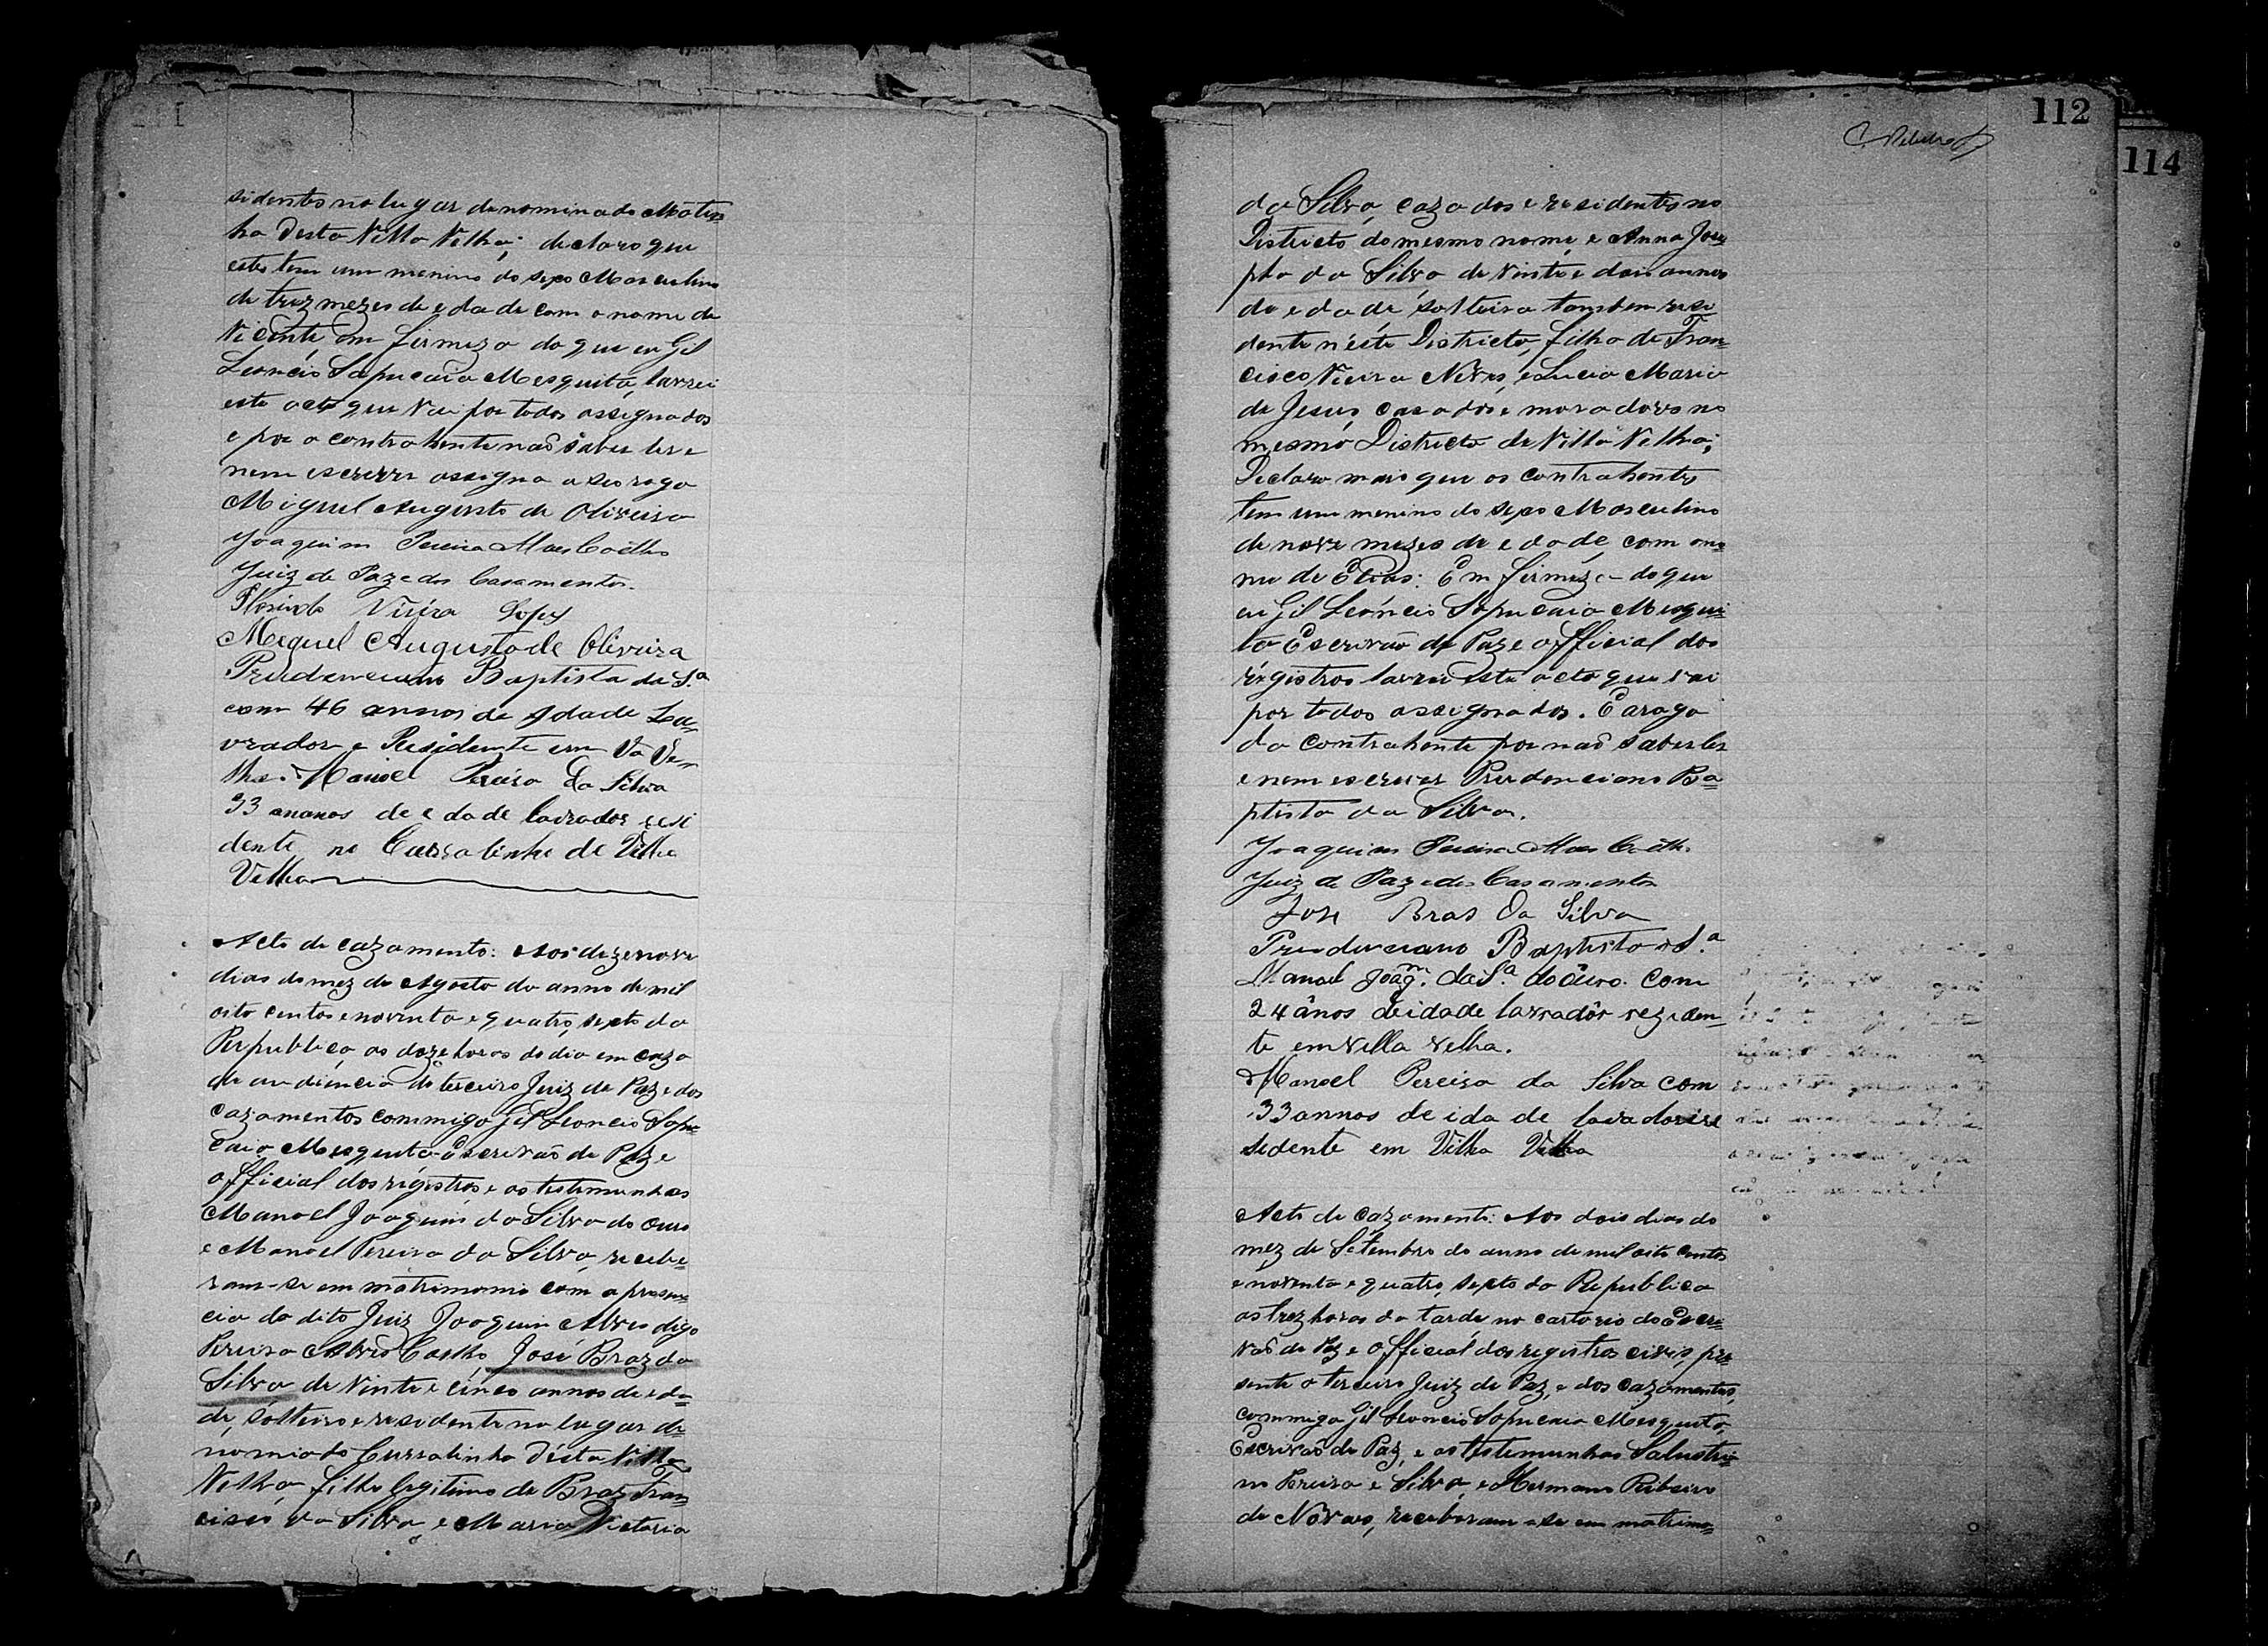 sidentes no lugar denominado Matin
ha desta Villa Velha; declaro que
estes tem um menino do sexo Masculino
de trez mezes de edade com o nome de
Vicente em firmeza do que eu Gil
Leoncio Sapucaia Mesquita, lavrei
este acto que vai por todos assignados
e por a contrahente naõ saber ler e
nem escrever assigna a seo rogo
Miguel Augusto de Oliveira
Joaquim Pereira Alves Coêlho
Juiz de Paz e dos Casamentos.
Florindo Vieira Lopes
Meguel Augusto de Oliveira
Prudenciano Baptista da S.ª
com 46 annos de Idade La=
vrador e Residente em Va Ve=
lha. Manoel Pereira da Silva
33 ananos de edade lavrador resi
dente no Curralinho de Villa
Velha
Acto de cazamento: Aos dezenove
dias do mez de Agosto do anno de mil
oito centos e noventa e quatro, sexto da
Republica as doze horas do dia em caza
de audiencia do terceiro Juiz de Paz e dos
cazamentos commigo Gil Leoncio Sapu=
caia Mesquita Escrivaõ de Paz e
official dos registros e as testemunhas
Manoel Joaquim da Silva do Ouro
e Manoel Pereira da Silva, recebe=
ram-se em matrimonio com a presen=
cia do dito Juiz Joaquim Alves digo
Pereira Alves Coelho José Braz da
Silva de vinte e cinco annos de eda=
de, solteiro e residente no lugar de=
nomiado Curralinho désta Villa
Velha, filho legitimo de Braz Fran=
cisco da Silva, e Maria Victoria
112
114
da Silva, cazados e residentes no
Districto do mesmo nome, e Anna Jose=
pha da Silva de vinte e dois annos
de edade solteira tambem resi
dente n'éste Districto, filha de Fran=
cisco Vieira Neves, e Lucia Maria
de Jesus casados e moradores no
mesmo Districto de Villa Velha;
Declaro mais que os contrahentes
tem um menino do sexo Masculino
de nove mezes de edade, com o no=
me de Elias: Em firmeza do que
eu Gil Leoncio Sapucaia Mesqui=
ta Escrivaõ de Paz e official dos
registros lavrei este acto que vai
por todos assignados. E a rogo
da contrahente por naõ saber ler
e nem escrever Prudenciano Ba=
ptista da Silva.
Joaquim Pereira Alves Coêlho
Juiz de Paz e dos Casamentos
Jose Bras Da Silva
Prudenciano Baptista da S.ª
Manoel Joaqm. da S.ª do ouro. Com
24 ânos de idade lavradôr rezeden=
te em vella velha.
Manoel Pereira da Silva com
33 annos de idade lavador re
sedente em Vilha Velha
Acto de cazamento: Aos dois dias do
mez de Setembro do anno de mil oito centos
e noventa e quatro, sexto da Republica
as trez horas da tarde no cartorio do Escri=
vaõ de Paz e official dos registros civis, pre=
sente o terceiro Juiz de Paz, e dos cazamentos,
commigo Gil Leoncio Sapucaia Mesquita,
Escrivaõ de Paz, e as testemunhas Salustia=
no Pereira e Silva, e Hermano Ribeiro
de Novaes, receberam-se em matrimo=